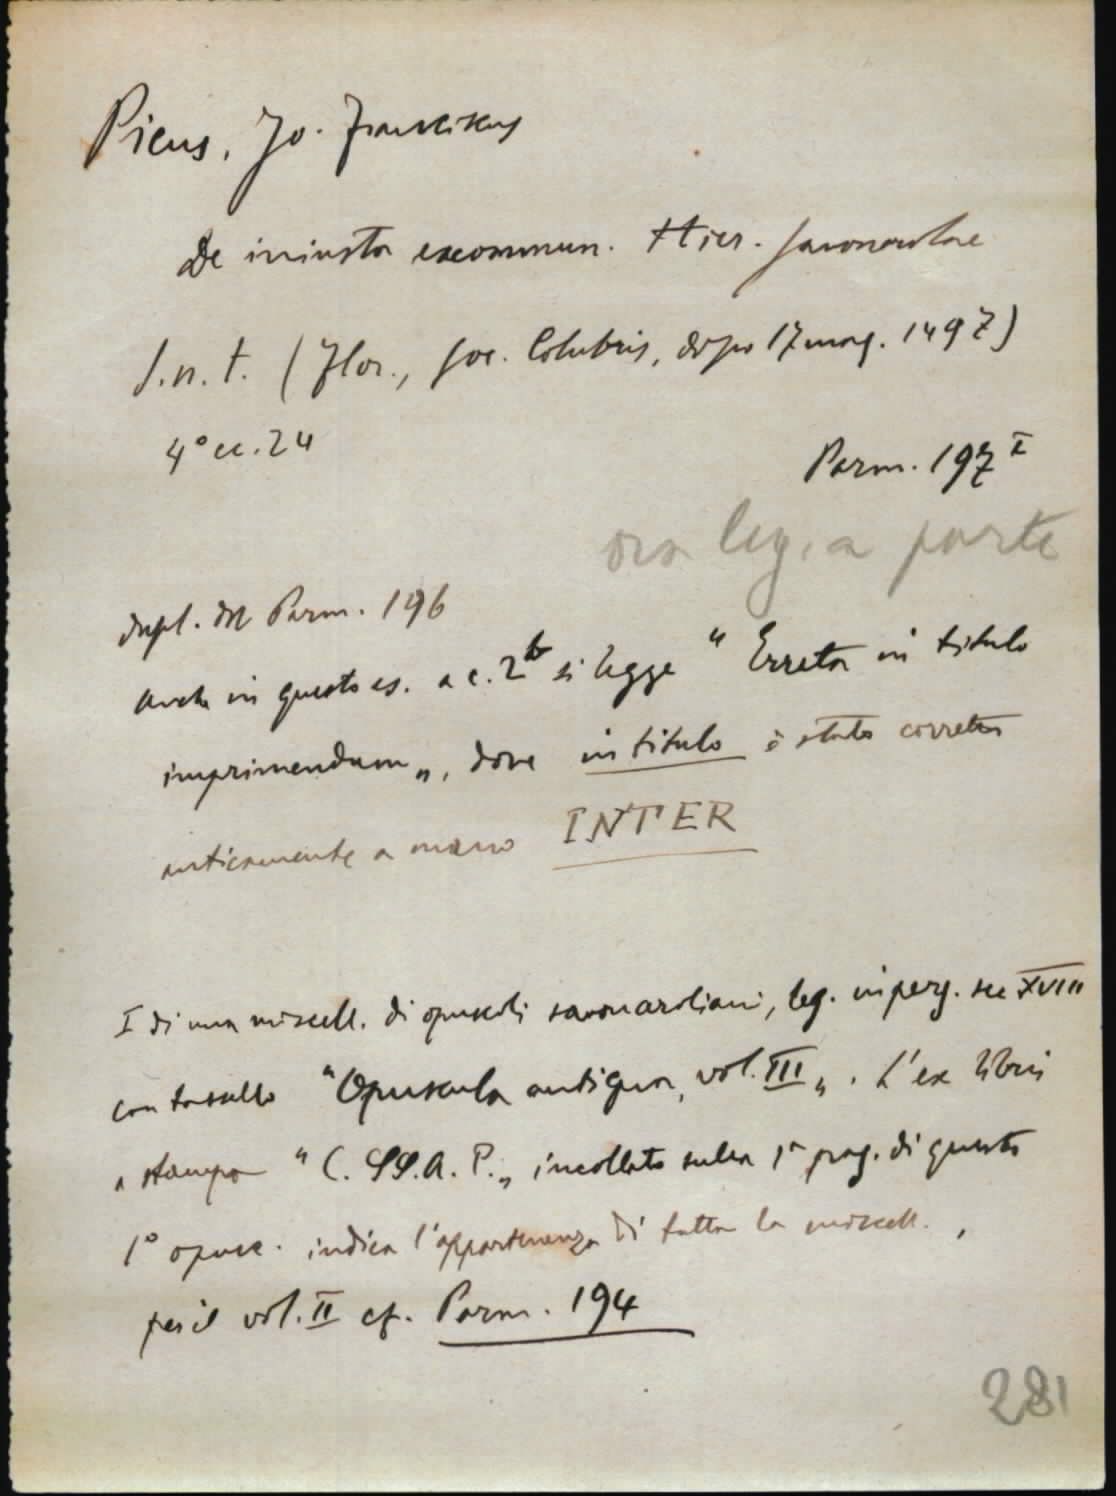 Picus, Jo. Franciscus
De iniusta excommun. Hier. Savonarolae
S.n.t. (Flor., Soc. Colubris, dopo 17 mag. 1497)
4° cc. 24
Parm. 197 I
ora leg. a parte
dupl. del Parm. 196
Anche in questo es. a c. 2b si legge "Errata in titulo
imprimendum", dove in titulo è stato corretto
anticamente a mano INTER
I di una miscell. di opuscoli savonaroliani, leg. in perg. sec XVIII
con tassello "Opuscula antiqua, vol. III". L'ex libris
a stampa "C. SS. A. P." incollato sulla 1a pag. di questo
1° opusc. indica l'appartenenza di tutta la miscell.,
per il vol. II cf. Parm. 194
281